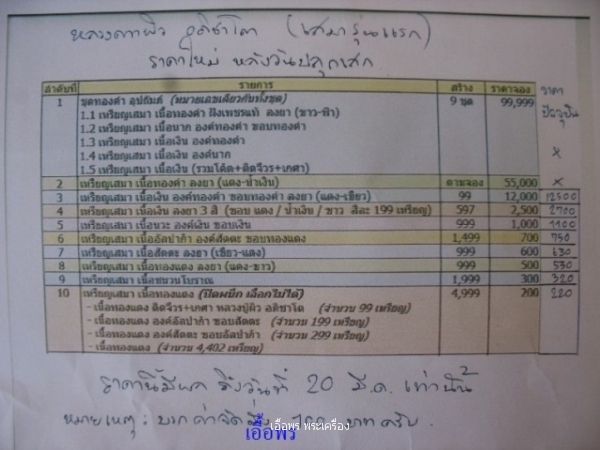 หลวงตาผิว อติชาโต (เสมารุ่นแรก)
ราคาใหม่ หลังวันปลุกเสก
ลำดับที่ รายการ สร้าง ราคาจอง ราคาปัจจุบัน
1 ชุดทองคำ อุปถัมภ์ (หมายเลขเดียวกันทั้งชุด) 9 ชุด 99,999 x
1.1 เหรียญเสมา เนื้อทองคำ ฝังเพชรแท้ ลงยา (ขาว-ฟ้า)
1.2 เหรียญเสมา เนื้อนาก องค์ทองคำ ขอบทองคำ
1.3 เหรียญเสมา เนื้อเงิน องค์ทองคำ
1.4 เหรียญเสมา เนื้อเงิน องค์นาก
1.5 เหรียญเสมา เนื้อเงิน (รวมโค้ด+ติดจีวร+เกศา)
2 เหรียญเสมา เนื้อทองคำ ลงยา (แดง-น้ำเงิน) ตามจอง 55,000 x
3 เหรียญเสมา เนื้อเงิน องค์ทองคำ ขอบทองคำ ลงยา (แดง-เขียว) 99 12,000 12500
4 เหรียญเสมา เนื้อเงิน ลงยา 3 สี (ขอบ แดง / น้ำเงิน / ขาว สีละ 199 เหรียญ) 597 2,500 2700
5 เหรียญเสมา เนื้อนวะ องค์เงิน ขอบเงิน 999 1,000 1100
6 เหรียญเสมา เนื้ออัลปาก้า องค์สัตตะ ขอบทองแดง 1,499 700 750
7 เหรียญเสมา เนื้อสัตตะ ลงยา (เขียว-แดง) 999 600 630
8 เหรียญเสมา เนื้อทองแดง ลงยา (แดง-ขาว) 999 500 530
9 เหรียญเสมา เนื้อชนวนโบราณ 1,999 300 320
10 เหรียญเสมา เนื้อทองแดง (ปิดผนึก เลือกไม่ได้) 4,999 200 220
- เนื้อทองแดง ติดจีวร+เกศา หลวงปู่ผิว อติชาโต (จำนวน 99 เหรียญ)
- เนื้อทองแดง องค์อัลปาก้า ขอบสัตตะ (จำนวน 199 เหรียญ)
- เนื้อทองแดง องค์สัตตะ ขอบอัลปาก้า (จำนวน 299 เหรียญ)
- เนื้อทองแดง (จำนวน 4,402 เหรียญ)
ราคานี้มีผล ถึงวันที่ 20 มี.ค. เท่านั้น
หมายเหตุ : บวกค่าจัดส่ง 100 บาท ครับ.
เอื้อพร พระเครื่อง
เอื้อพร